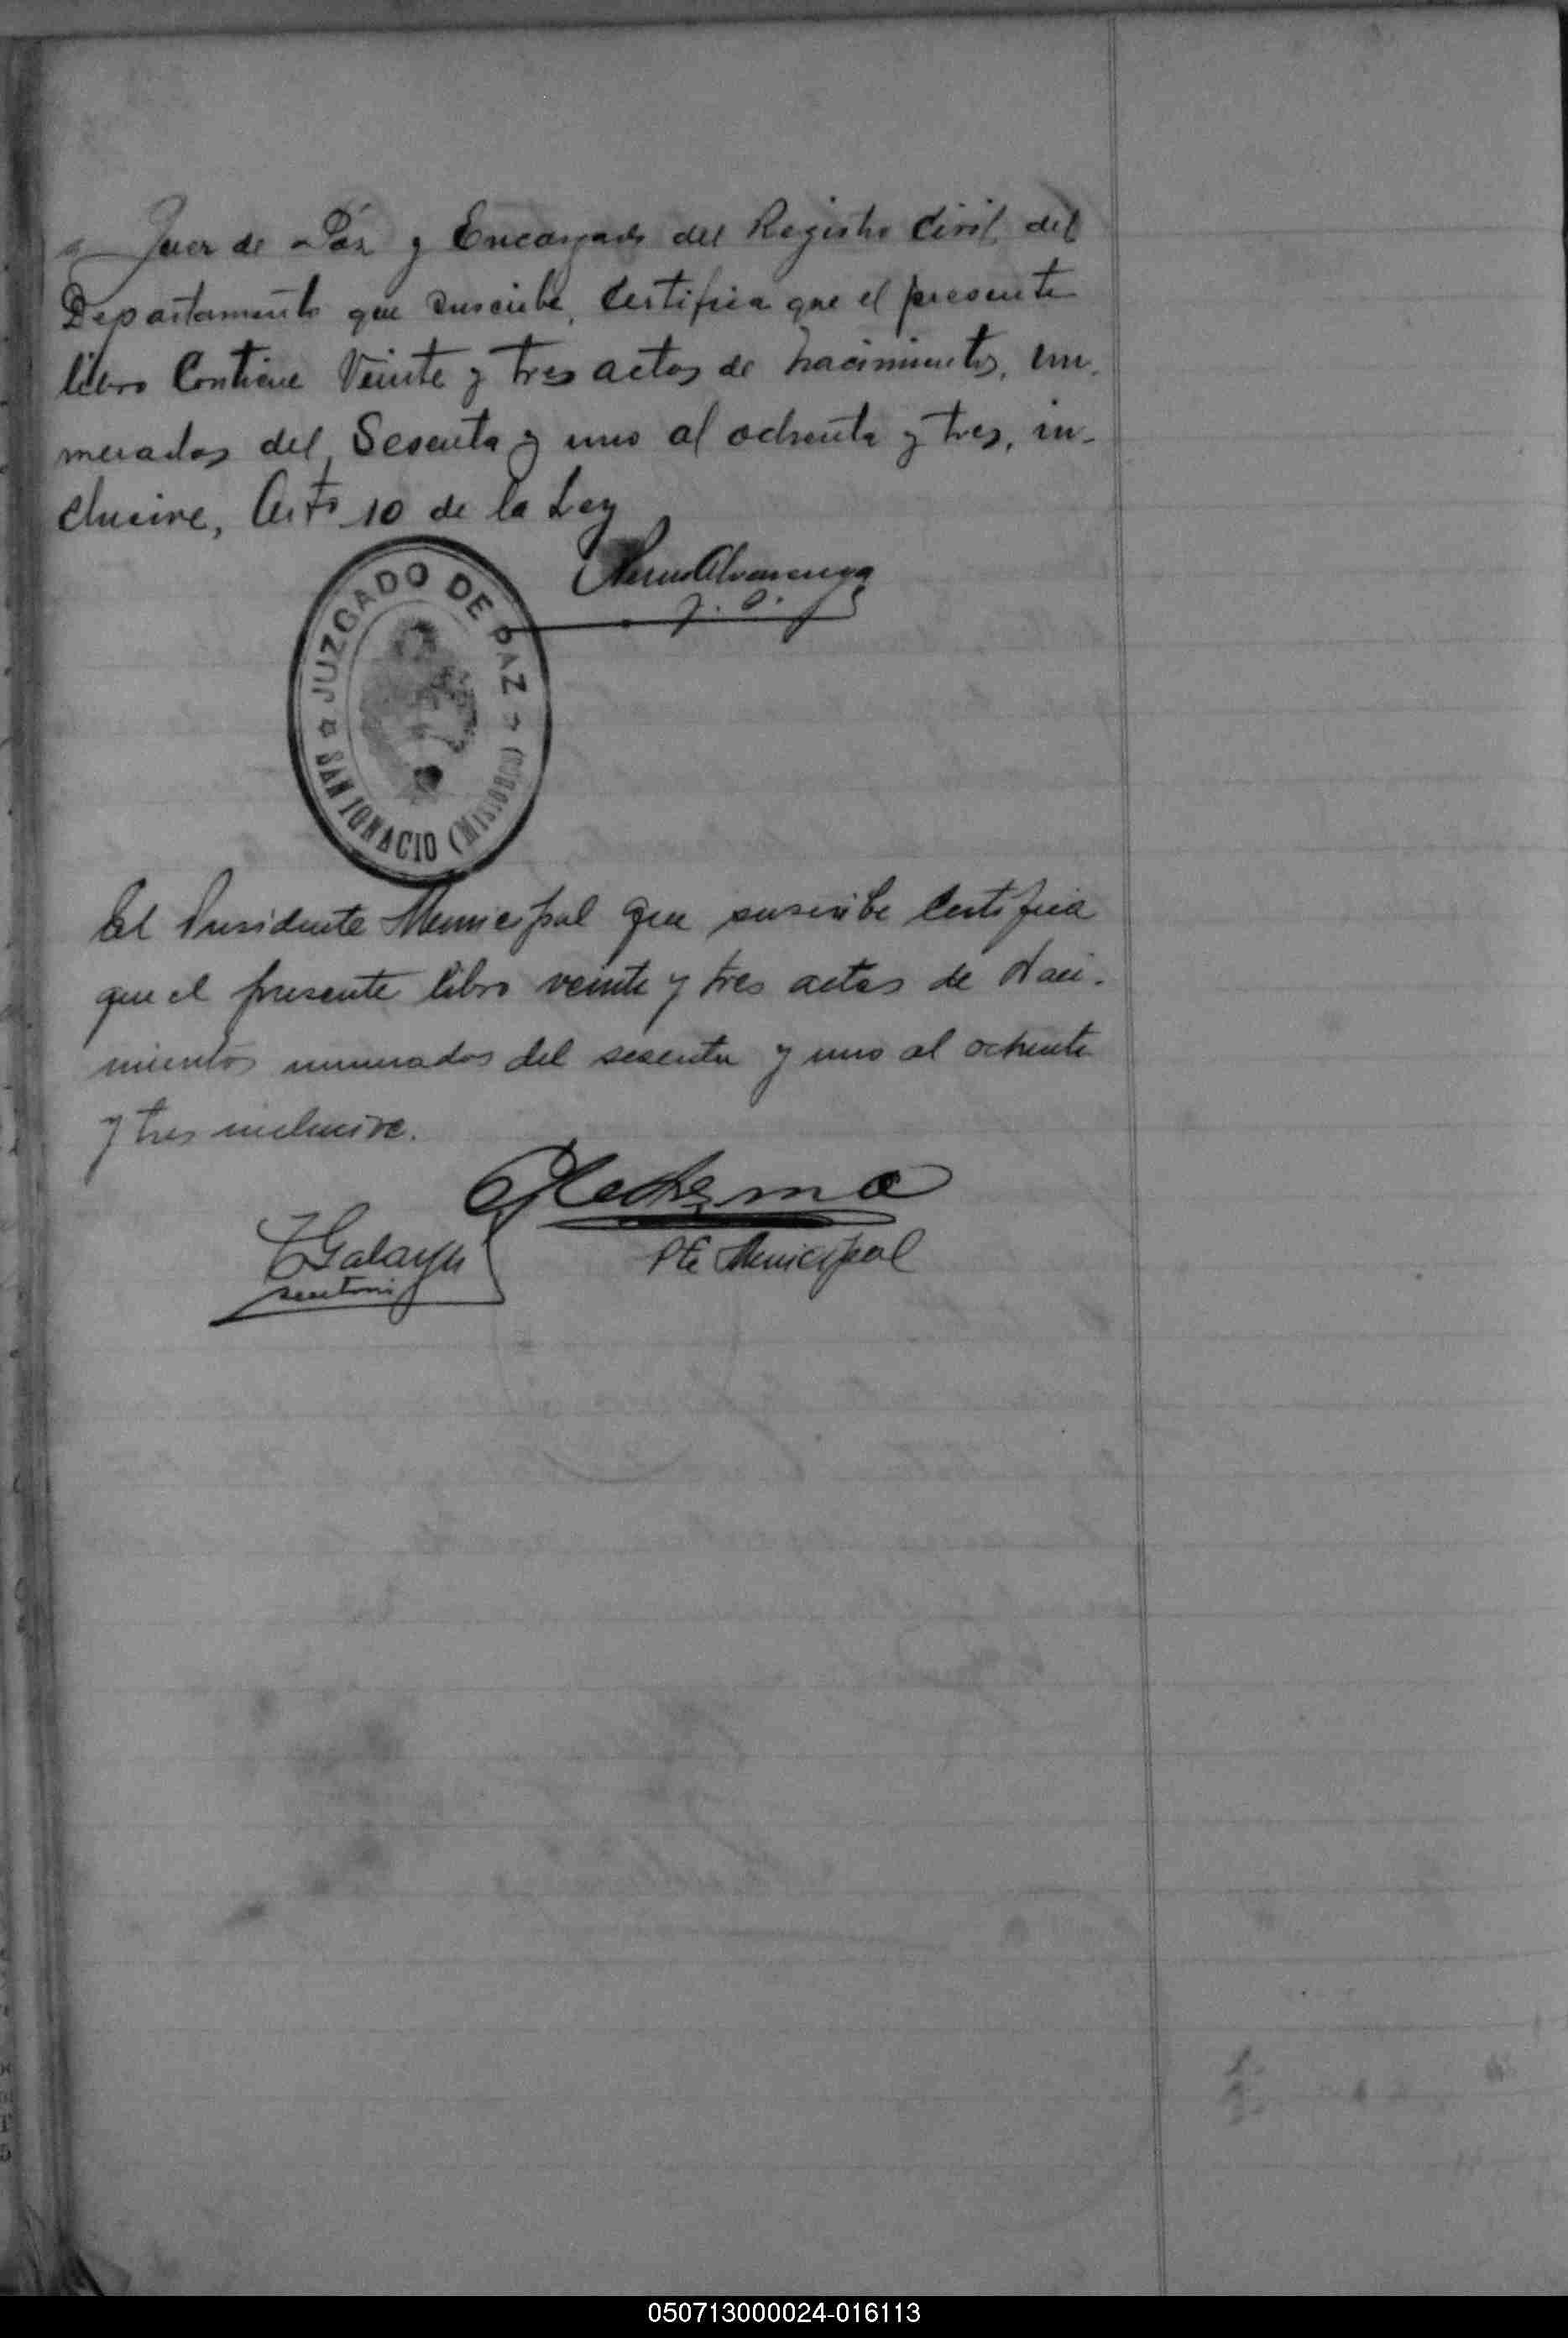 Juez de Páz y Encargado del Registro Civil del
Departamento que suscribe, Certifica que el presente
libro Contiene Veinte y tres actas de nacimientos, nu-
merados del Sesenta y uno al ochenta y tres, in-
clusive, Arto 10 de la Ley
Alvarenga
J. P.
JUZGADO DE PAZ
SAN IGNACIO (MISIONES)
El Presidente Municipal que suscribe Certifica
que el presente libro veinte y tres actas de Naci-
mientos numerados del sesenta y uno al ochenta
y tres inclusive.
Ledesma
Pte Municipal
050713000024-016113